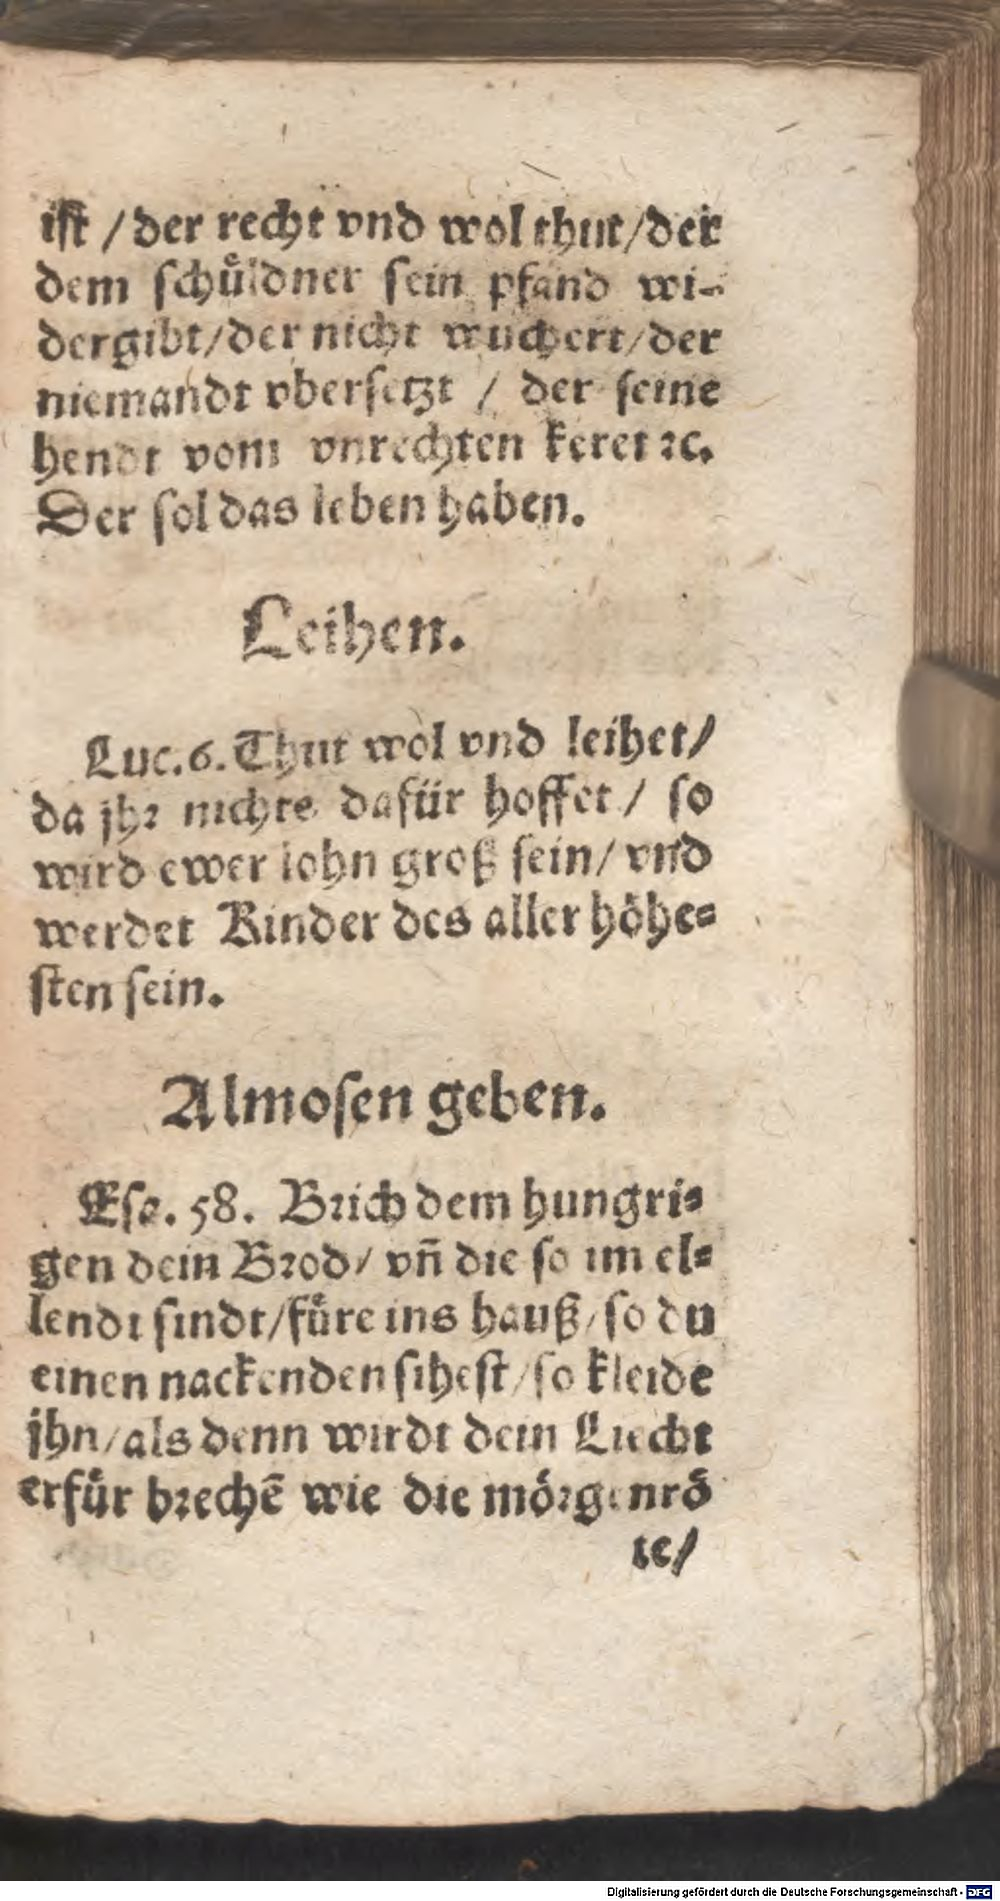 ist / der recht vnd wol thut/der
dem schuͤldner sein pfand wi-
dergibt/der nicht wuchert/der
niemandt vbersetzt / der seine
hendt vom vnrechten keret ꝛc.
Der sol das leben haben.
Leihen.
Luc. 6. Thut wol vnd leihet/
da jhr nichts dafür hoffet / so
wird ewer lohn groß sein/ vnd
werdet Kinder des aller höhe-
sten sein.
Almosen geben.
Esa. 58. Brich dem hungri-
gen dein Brod/ vñ die so im el-
lendt sindt/fuͤre ins hauß/so du
einen nackenden sihest/so kleide
jhn/als denn wirdt dein Liecht
erfuͤr brechē wie die moͤrgenroͤ
te/
Digitalisierung gefördert durch die Deutsche Forschungsgemeinschaft - DFG